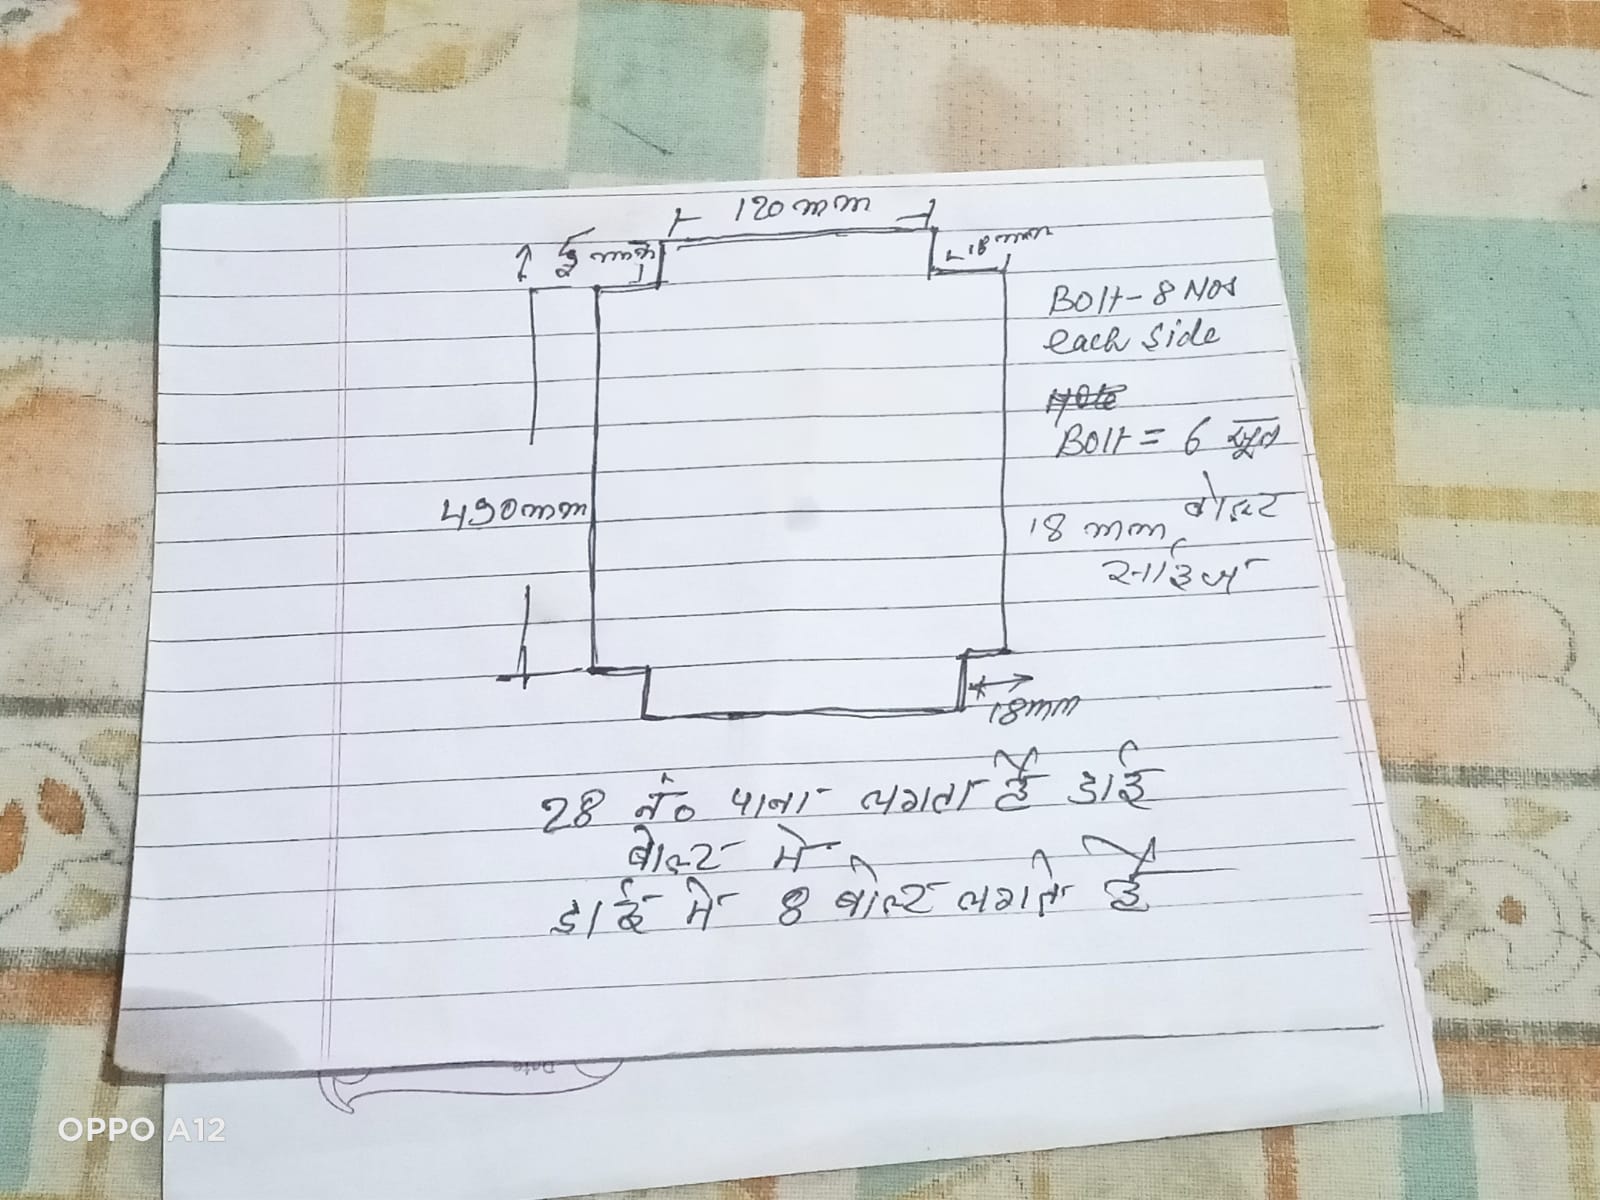 120 mm
5 mm
18 mm
Bolt - 8 Nos
each side
Note
Bolt = 6 सूत
बोल्ट
490mm
18 mm
साईज
18mm
28 नं० पाना लगता है डाई
बोल्ट में
डाई में 8 बोल्ट लगते है
Date
OPPO A12